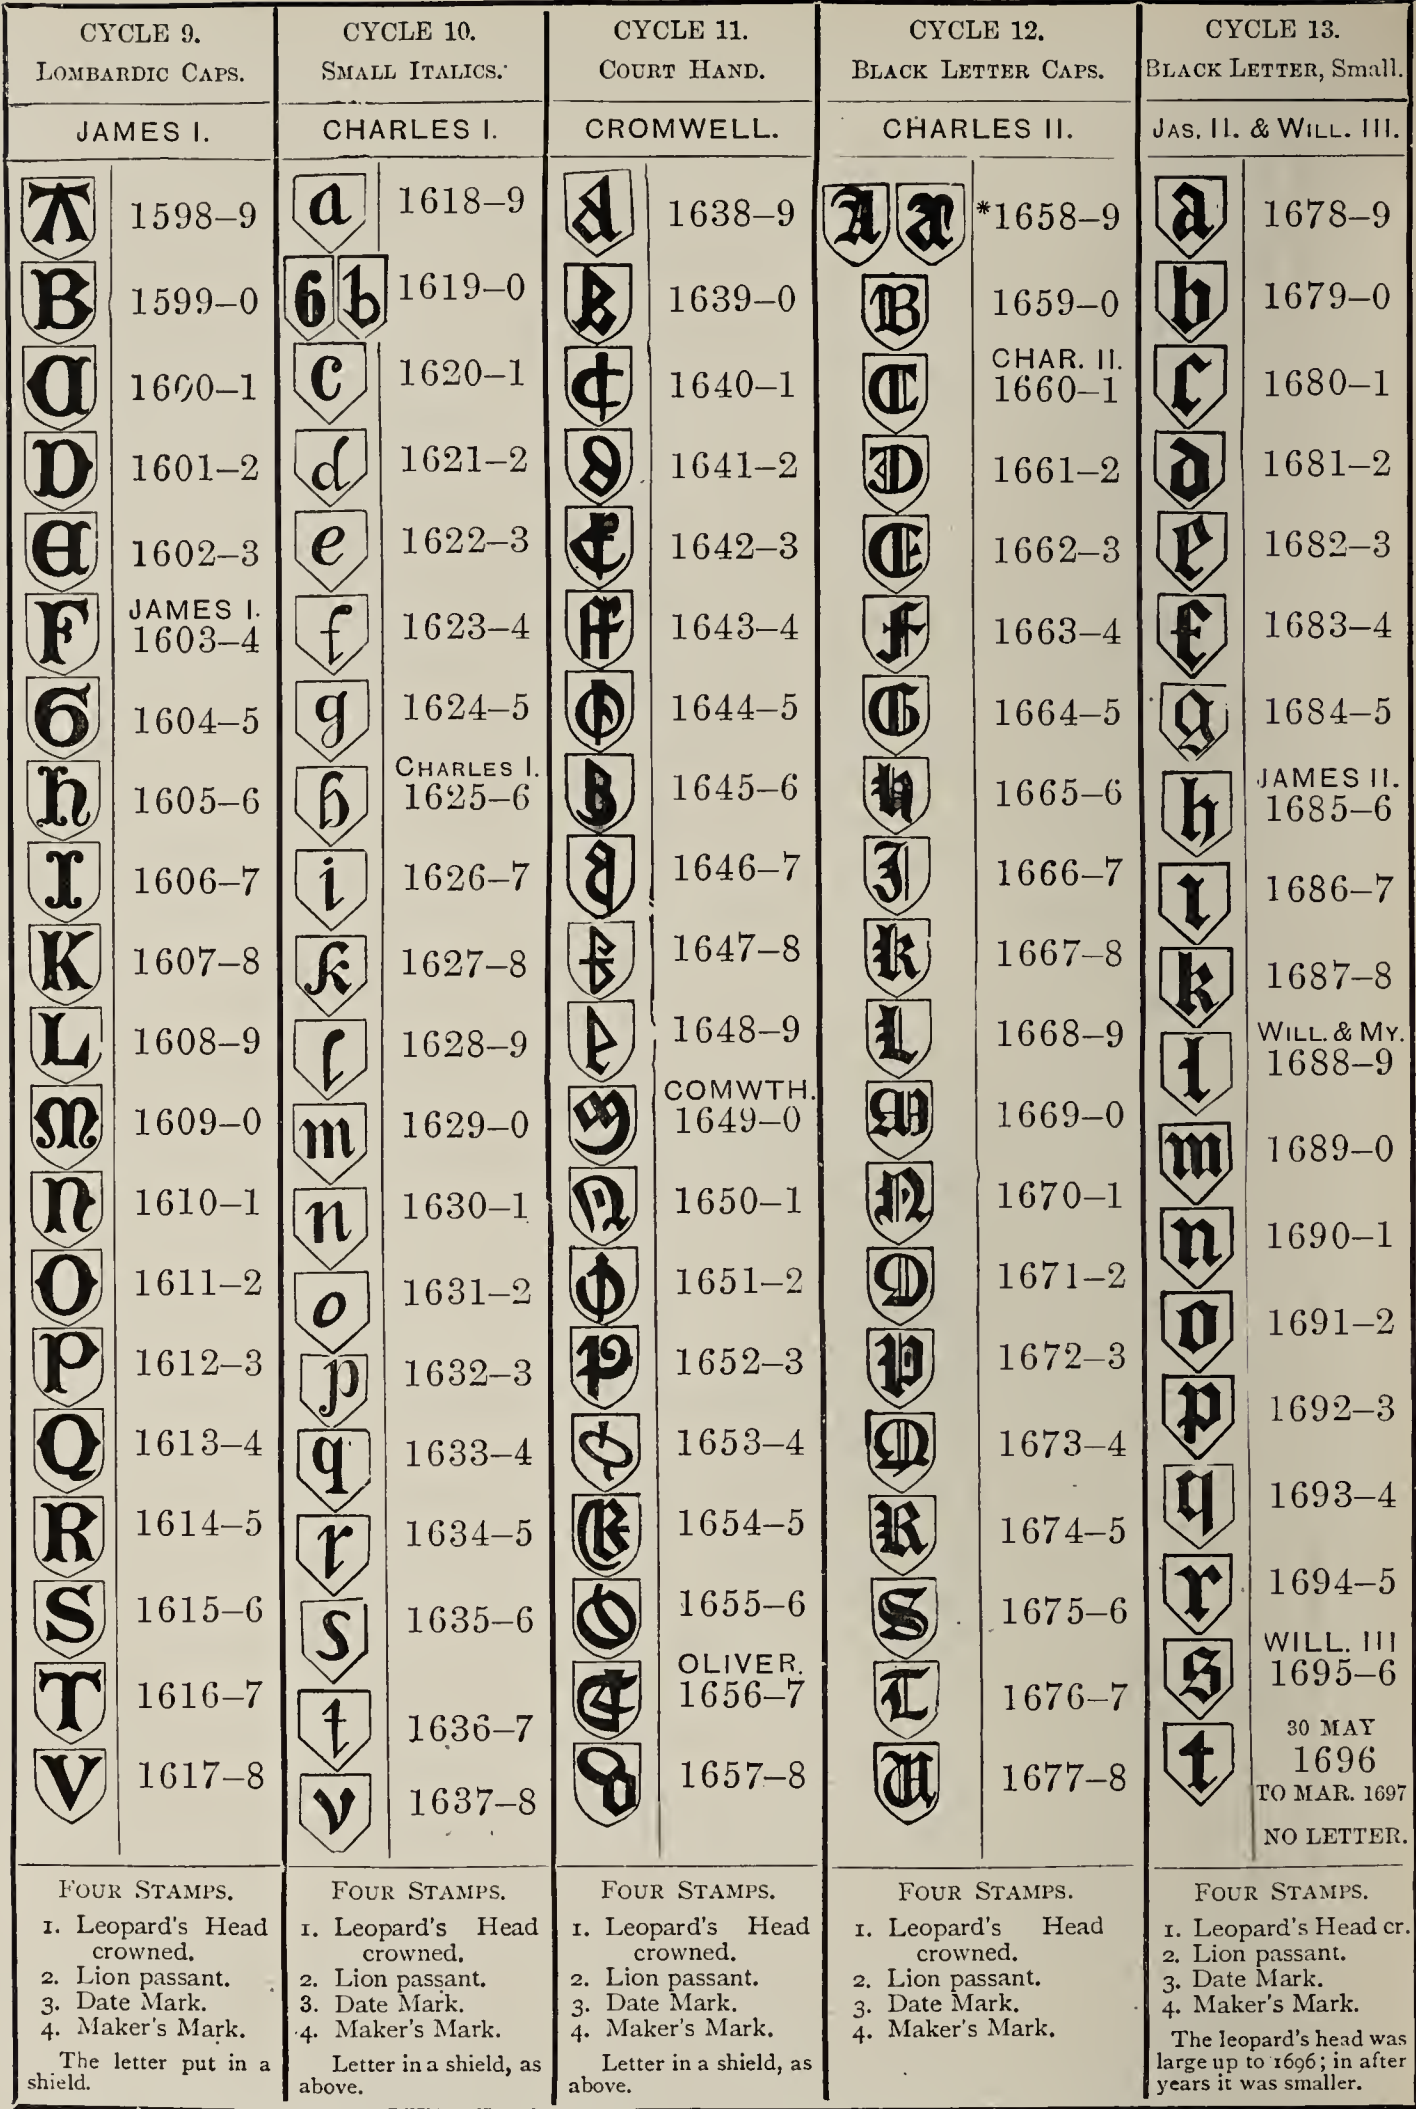 CYCLE 9.
LOMBARDIC CAPS.
JAMES I.
A 1598–9
B 1599–0
C 1600–1
D 1601–2
E 1602–3
JAMES I.
F 1603–4
G 1604–5
h 1605–6
I 1606–7
K 1607–8
L 1608–9
M 1609–0
N 1610–1
O 1611–2
P 1612–3
Q 1613–4
R 1614–5
S 1615–6
T 1616–7
V 1617–8
FOUR STAMPS.
1. Leopard's Head
crowned.
2. Lion passant.
3. Date Mark.
4. Maker's Mark.
The letter put in a
shield.
CYCLE 10.
SMALL ITALICS.
CHARLES I.
a 1618–9
b b 1619–0
c 1620–1
d 1621–2
e 1622–3
f 1623–4
g 1624–5
CHARLES I.
h 1625–6
i 1626–7
k 1627–8
l 1628–9
m 1629–0
n 1630–1
o 1631–2
p 1632–3
q 1633–4
r 1634–5
s 1635–6
t 1636–7
v 1637–8
FOUR STAMPS.
1. Leopard's Head
crowned.
2. Lion passant.
3. Date Mark.
4. Maker's Mark.
Letter in a shield, as
above.
CYCLE 11.
COURT HAND.
CROMWELL.
1638–9
1639–0
1640–1
1641–2
1642–3
1643–4
1644–5
1645–6
1646–7
1647–8
1648–9
COMWTH.
1649–0
1650–1
1651–2
P 1652–3
1653–4
1654–5
1655–6
OLIVER.
1656–7
1657–8
FOUR STAMPS.
1. Leopard's Head
crowned.
2. Lion passant.
3. Date Mark.
4. Maker's Mark.
Letter in a shield, as
above.
CYCLE 12.
BLACK LETTER CAPS.
CHARLES II.
A A *1658–9
B 1659–0
CHAR. II.
C 1660–1
D 1661–2
E 1662–3
F 1663–4
G 1664–5
H 1665–6
I 1666–7
K 1667–8
L 1668–9
M 1669–0
N 1670–1
O 1671–2
P 1672–3
Q 1673–4
R 1674–5
S 1675–6
T 1676–7
U 1677–8
FOUR STAMPS.
1. Leopard's Head
crowned.
2. Lion passant.
3. Date Mark.
4. Maker's Mark.
CYCLE 13.
BLACK LETTER, Small.
JAS. II. & WILL. III.
a 1678–9
b 1679–0
c 1680–1
d 1681–2
e 1682–3
f 1683–4
g 1684–5
JAMES II.
h 1685–6
i 1686–7
k 1687–8
WILL. & MY.
l 1688–9
m 1689–0
n 1690–1
o 1691–2
p 1692–3
q 1693–4
r 1694–5
WILL. III
s 1695–6
30 MAY
t 1696
TO MAR. 1697
NO LETTER.
FOUR STAMPS.
1. Leopard's Head cr.
2. Lion passant.
3. Date Mark.
4. Maker's Mark.
The leopard's head was
large up to 1696; in after
years it was smaller.